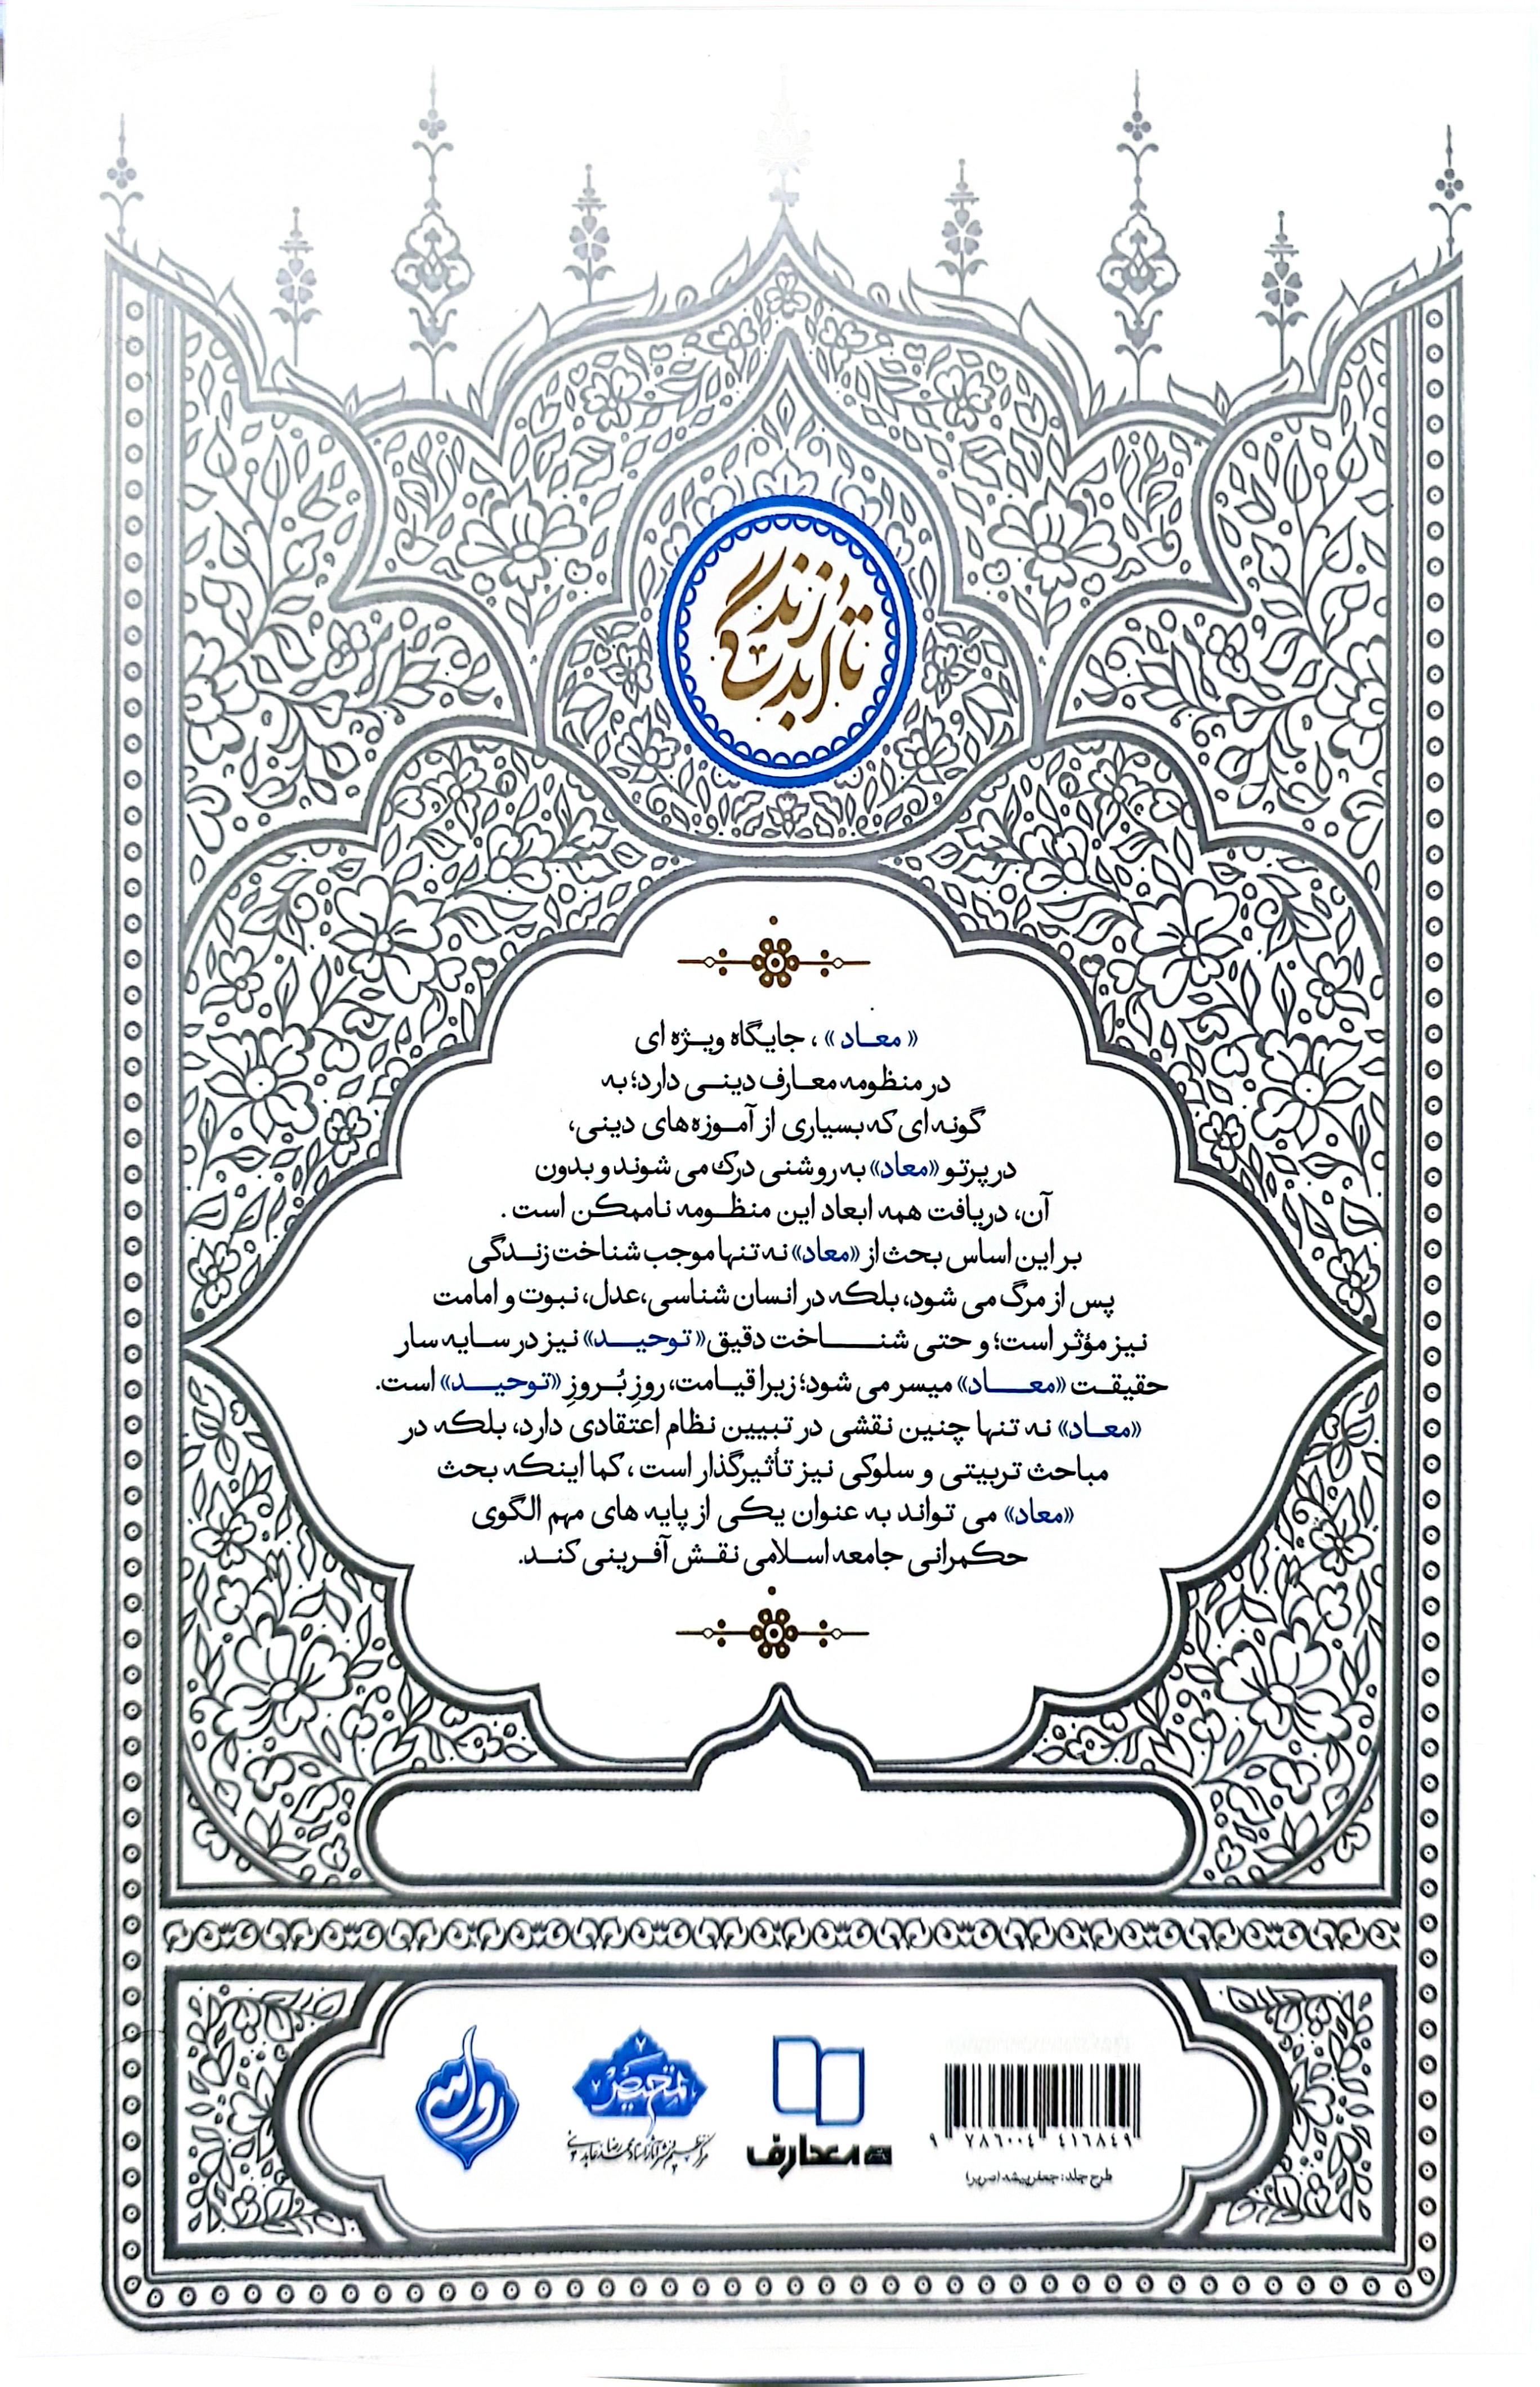 تا ابد زندگی
«معاد»، جایگاه ویژه ای
در منظومه معارف دینی دارد؛ به
گونه ای که بسیاری از آموزه های دینی،
در پرتو «معاد» به روشنی درک می شوند و بدون
آن، دریافت همه ابعاد این منظومه ناممکن است.
بر این اساس بحث از «معاد» نه تنها موجب شناخت زندگی
پس از مرگ می شود، بلکه در انسان شناسی، عدل، نبوت و امامت
نیز مؤثر است؛ و حتی شناخت دقیق «توحید» نیز در سایه سار
حقیقت «معاد» میسر می شود؛ زیرا قیامت، روزِ بُروزِ «توحید» است.
«معاد» نه تنها چنین نقشی در تبیین نظام اعتقادی دارد، بلکه در
مباحث تربیتی و سلوکی نیز تأثیرگذار است، کما اینکه بحث
«معاد» می تواند به عنوان یکی از پایه های مهم الگوی
حکمرانی جامعه اسلامی نقش آفرینی کند.
9 786004 416849
طرح جلد: جعفرپیشه (صریر)
معارف
تمحیص